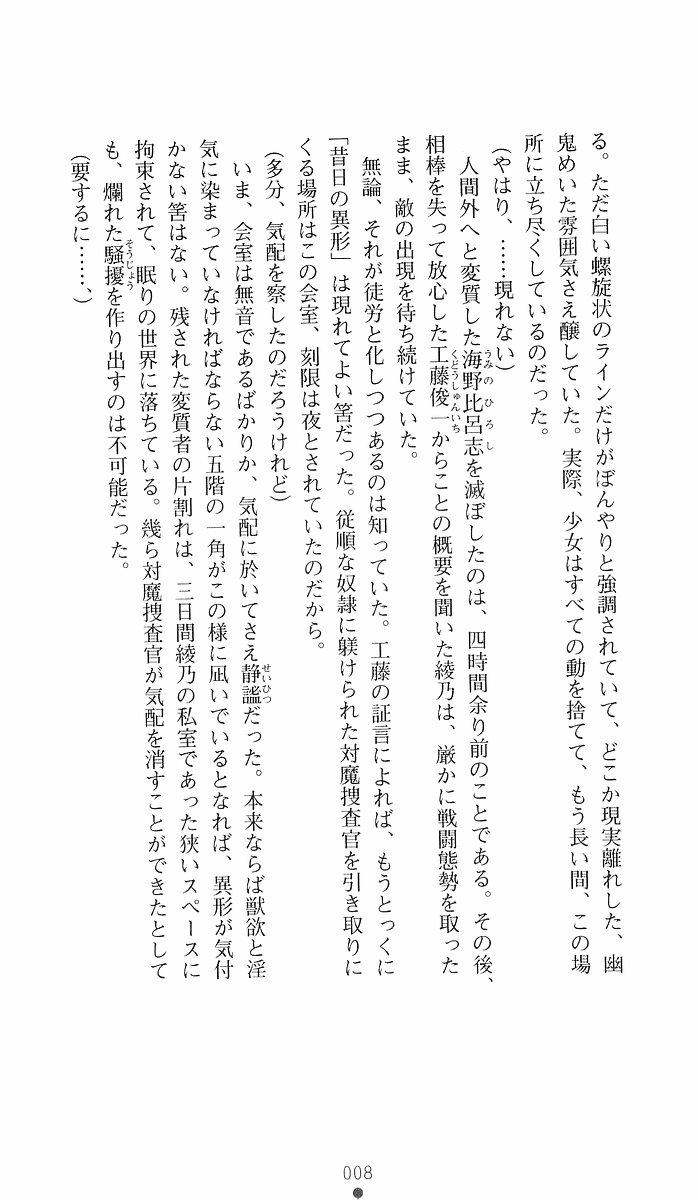 る。ただ白い螺旋状のラインだけがぼんやりと強調されていて、どこか現実離れした、幽
鬼めいた雰囲気さえ醸していた。実際、少女はすべての動を捨てて、もう長い間、この場
所に立ち尽くしているのだった。
（やはり、……現れない）
人間外へと変質した海野比呂志を滅ぼしたのは、四時間余り前のことである。その後、
うみのひろし
相棒を失って放心した工藤俊一からことの概要を聞いた綾乃は、厳かに戦闘態勢を取った
くどうしゅんいち
まま、敵の出現を待ち続けていた。
無論、それが徒労と化しつつあるのは知っていた。工藤の証言によれば、もうとっくに
「昔日の異形」は現れてよい筈だった。従順な奴隷に躾けられた対魔捜査官を引き取りに
くる場所はこの会室、刻限は夜とされていたのだから。
（多分、気配を察したのだろうけれど）
いま、会室は無音であるばかりか、気配に於いてさえ静謐だった。本来ならば獣欲と淫
せいひつ
気に染まっていなければならない五階の一角がこの様に凪いでいるとなれば、異形が気付
かない筈はない。残された変質者の片割れは、三日間綾乃の私室であった狭いスペースに
拘束されて、眠りの世界に落ちている。幾ら対魔捜査官が気配を消すことができたとして
も、爛れた騒擾を作り出すのは不可能だった。
そうじょう
（要するに……、）
008